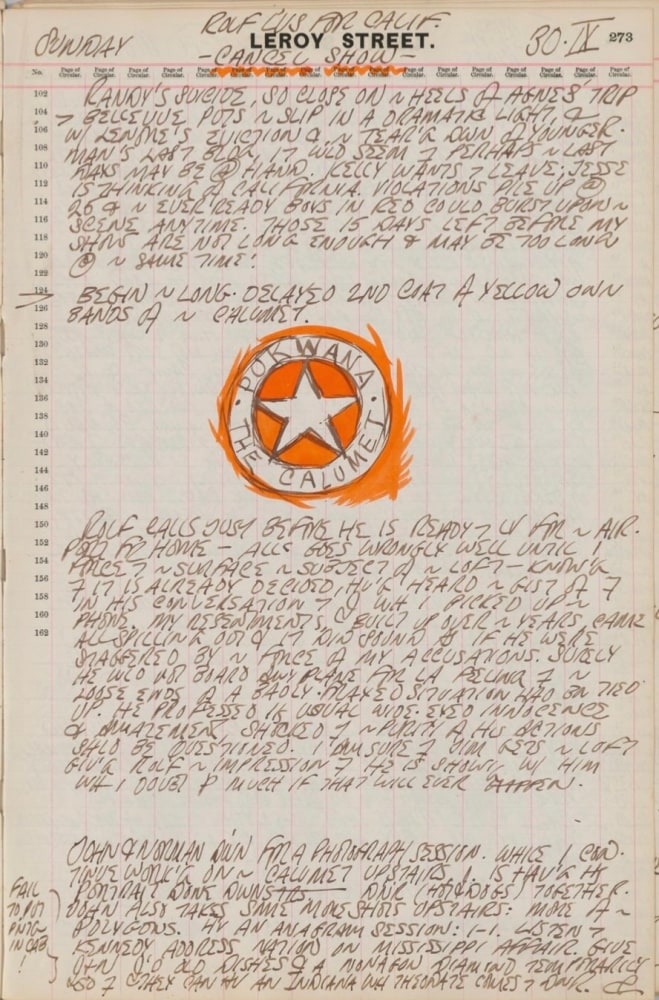 ROLF LVS FOR CALIF.
SUNDAY LEROY STREET. 30·IX 273
-CANCEL SHOW-
No. Page of Circular. Page of Circular. Page of Circular. Page of Circular. Page of Circular. Page of Circular. Page of Circular. Page of Circular. Page of Circular. Page of Circular. Page of Circular. Page of Circular. Page of Circular. Page of Circular. Page of Circular. Page of Circular.
102 RANDY'S SUICIDE, SO CLOSE ON ~ HEELS OF AGNES' TRIP
104 BELLEVUE PUTS ~ SLIP IN A DRAMATIC LIGHT, &
106 W/ LENORE'S EVICTION & ~ TEAR'G DWN OF YOUNGER-
108 MAN'S LAST BLDG, IT WLD SEEM 7 PERHAPS ~ LAST
110 DAYS MAY BE @ HAND. KELLY WANTS 7 LEAVE; JESSE
112 IS THINKING OF CALIFORNIA. VIOLATIONS PILE UP @
114 25 & ~ EVER READY BOYS IN RED COULD BURST UPON ~
116 SCENE ANYTIME. THOSE 15 DAYS LEFT BEFORE MY
118 SHOW ARE NOT LONG ENOUGH & MAY BE TOO LONG
120 @ ~ SAME TIME!
122
124 BEGIN ~ LONG-DELAYED 2ND COAT OF YELLOW OWN
126 BANDS OF ~ CALUMET.
128
130
132
134
136
138
140
142
144
146
148
PUKWANA · THE CALUMET ·
150 ROLF CALLS JUST BEFORE HE IS READY 7 LV FOR ~ AIR-
152 PORT FR HOME — ALL GOES WRONGLY WELL UNTIL I
154 FORCE 7 ~ SURFACE ~ SUBJECT OF ~ LOFT — KNOW'G
156 7 IT IS ALREADY DECIDED, HV'G HEARD ~ GIST OF 7
158 IN HIS CONVERSATION 7 WH I PICKED UP ~
160 PHONE. MY RESENTMENTS, BUILT UP OVER ~ YEARS, CAME
162 ALL SPILLING OUT & IT DID SOUND AS IF HE WERE
STAGGERED BY ~ FORCE OF MY ACCUSATIONS. SURELY
HE WLD NOT BOARD ANY PLANE FOR LA 7 ~
LOOSE ENDS OF A BADLY-FRAYED SITUATION HAD BN TIED
UP. HE PROFESSED HIS USUAL WIDE-EYED INNOCENCE
& AMAZEMENT, SHOCKED 7 ~ PURITY OF HIS ACTIONS
SHLD BE QUESTIONED. I AM SURE 7 JIM GETS ~ LOFT
GIV'G ROLF ~ IMPRESSION 7 HE IS SHOW'G W/ HIM
WH I DOUBT MUCH IF THAT WILL EVER HAPPEN.
JOHN & NORMAN DWN FOR A PHOTOGRAPH SESSION. WHILE I CON-
TINUE WORK'G ON ~ CALUMET UPSTAIRS J. IS HAV'G HIS
PORTRAIT DONE DWNSTRS — DNR (HOTDOGS) TOGETHER.
JOHN ALSO TAKES SOME MORE SHOTS UPSTAIRS: MORE OF ~
POLYGONS. HV AN ANAGRAM SESSION: 1-1. LISTEN 7
KENNEDY ADDRESS NATION ON MISSISSIPPI AFFAIR. GIVE
JOHN OLD DISHES & A MONAGON DIAMOND TEMPORARILY
SO 7 THEY CAN HV AN INDIANA WH THEODATE COMES 7 DNR.
FAIL
TO PUT
PNTG
IN CAB
!